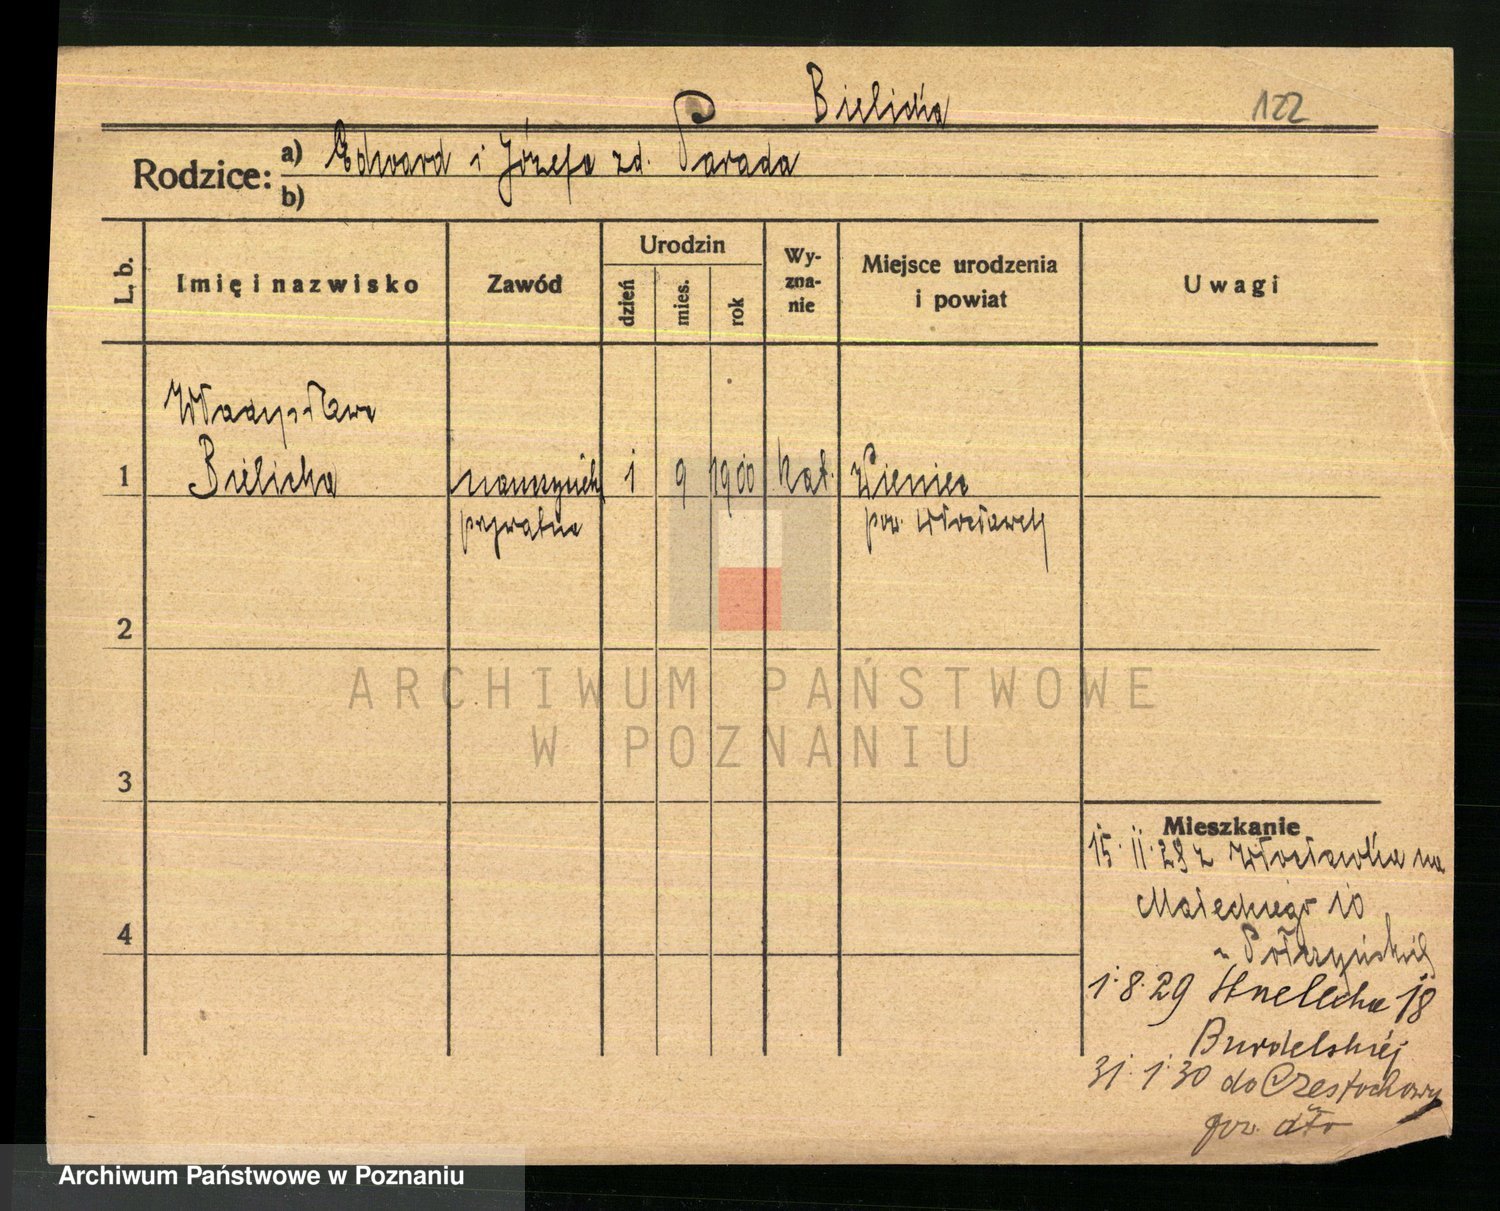 Bielicka
122
Rodzice: a) Edward i Józefa zd. Parada
b)
L. b.
Imię i nazwisko
Zawód
Urodzin
dzień
mies.
rok
Wy-
zna-
nie
Miejsce urodzenia
i powiat
Uwagi
Władysława
1 Bielicka nauczyciel 1 9 1900 kat. Wieniec
prywatna pow. Włocławek
2
ARCHIWUM PAŃSTWOWE
W POZNANIU
3
Mieszkanie
15.11.28 z Włocławka na
Małeckiego 10
4
1.8.29 18
31.1.30 do Częstochowy
pow. dto
Archiwum Państwowe w Poznaniu